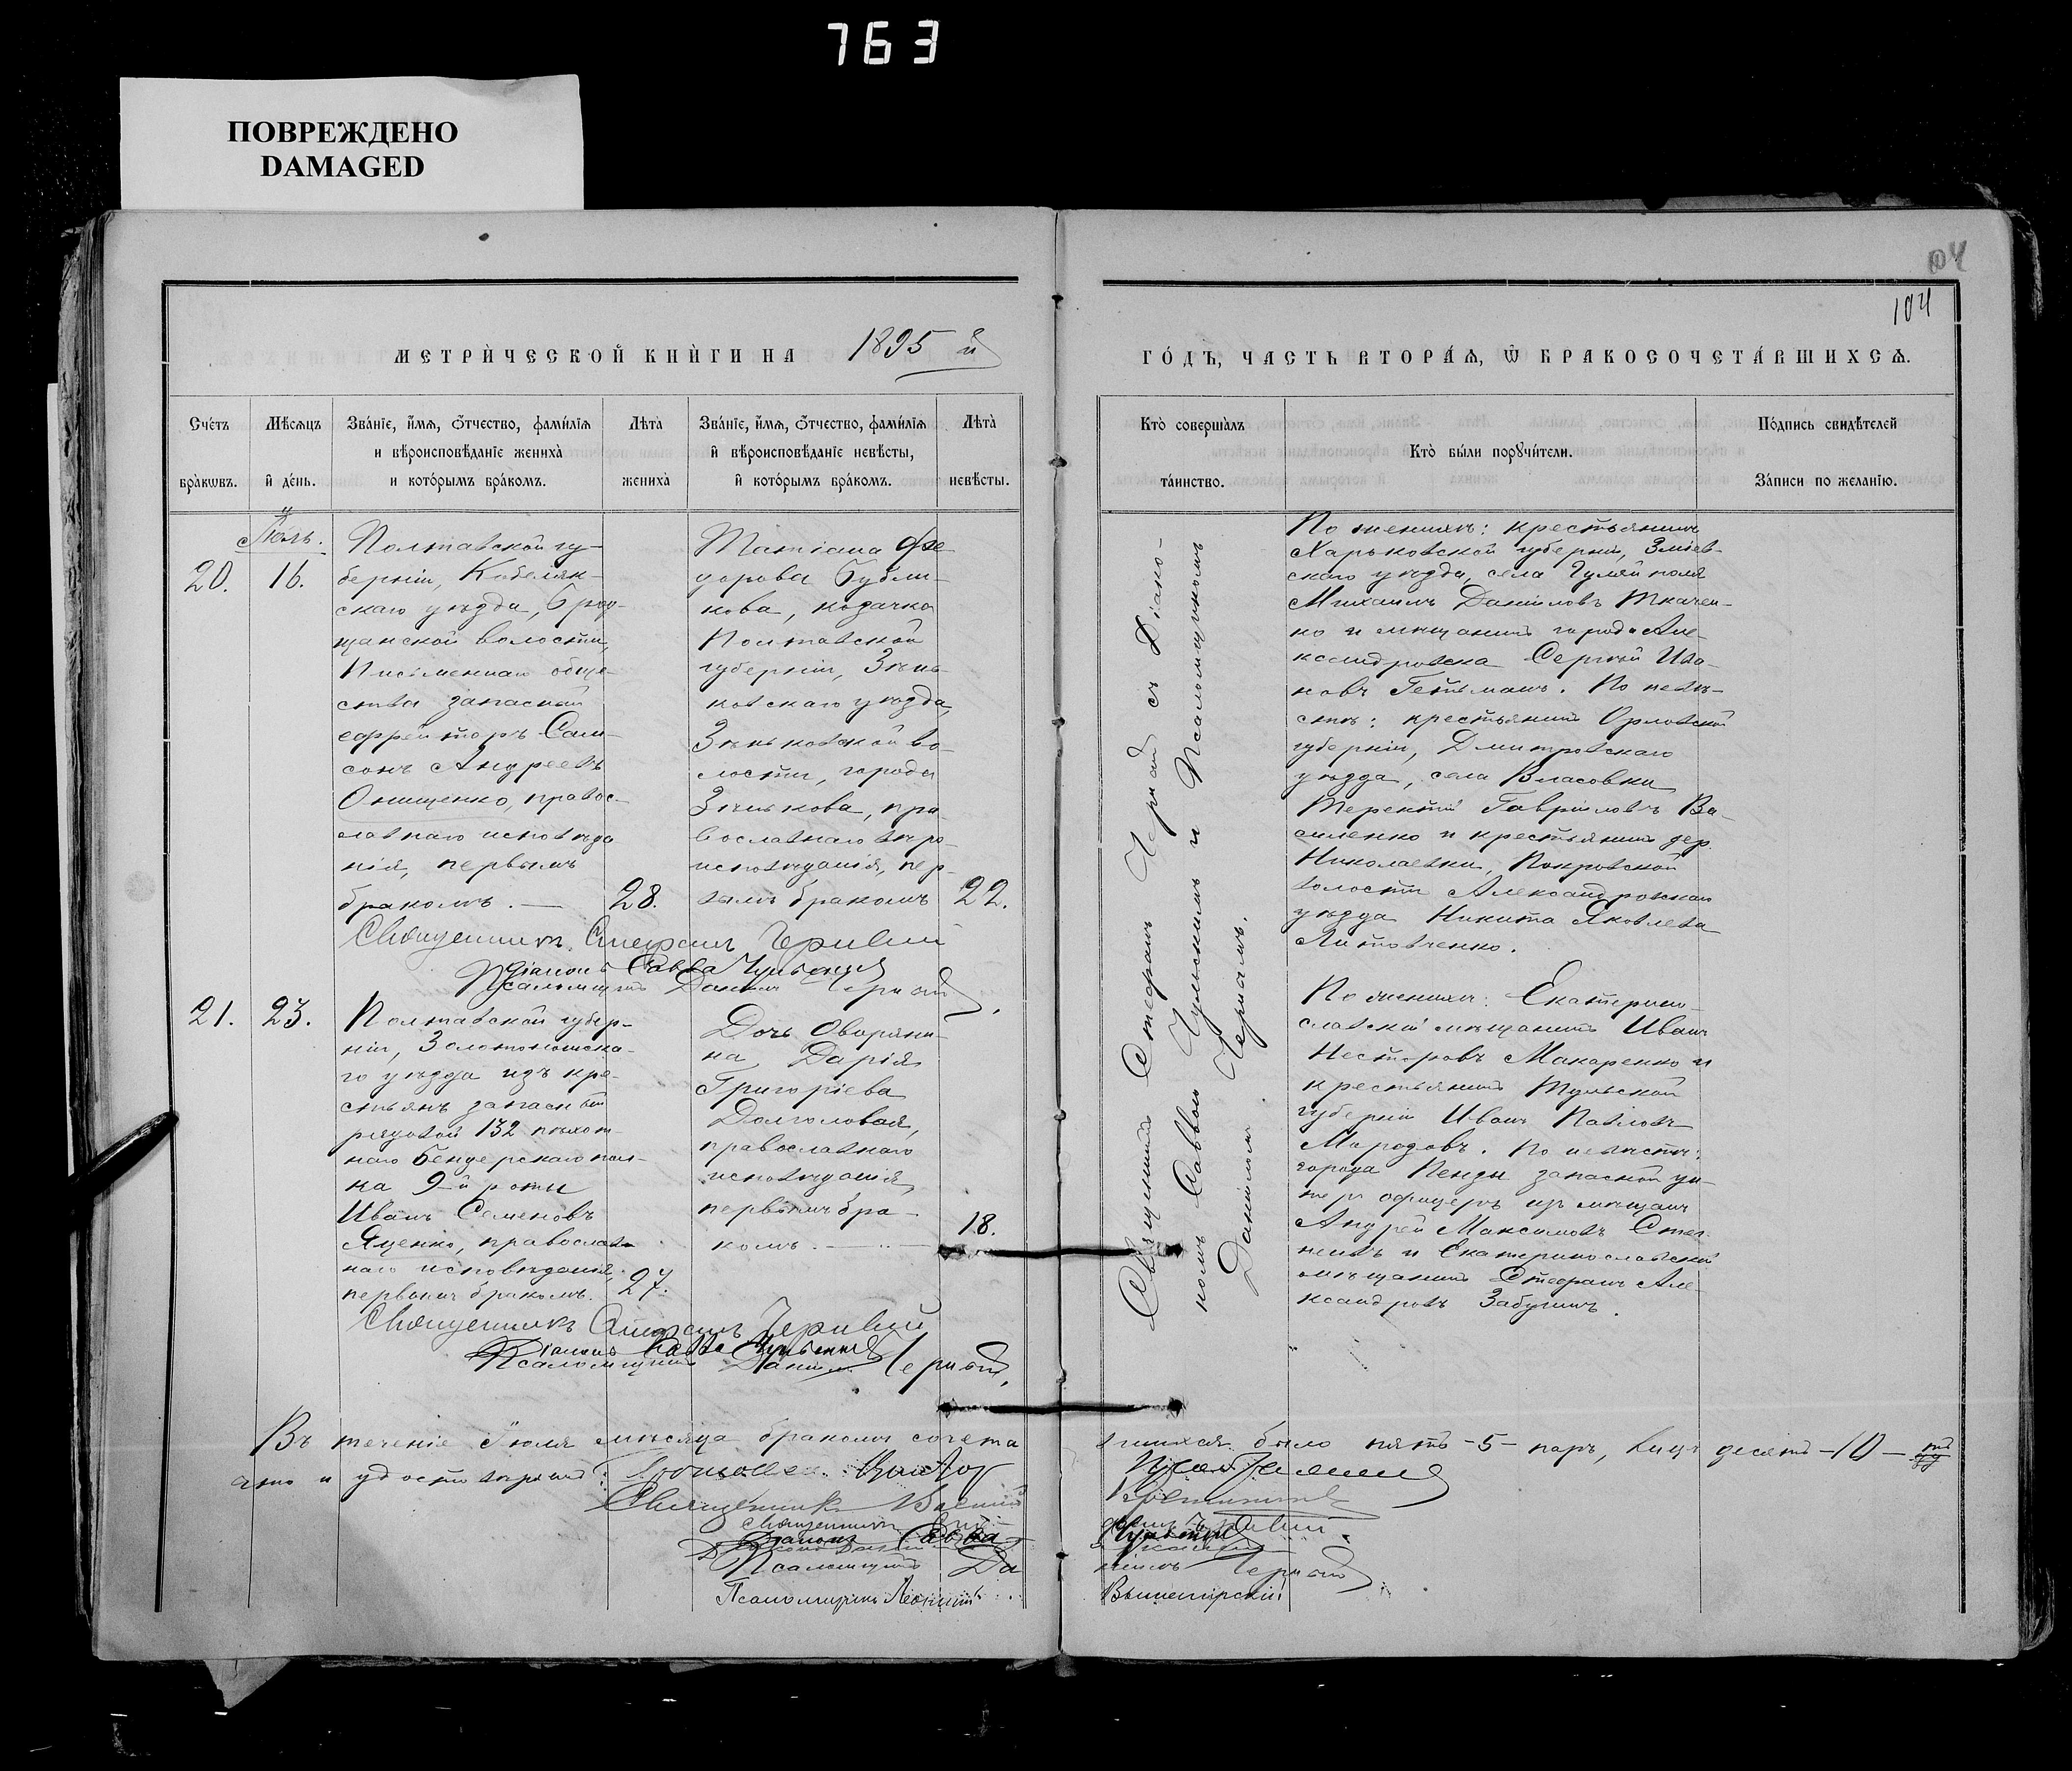 763
ПОВРЕЖДЕНО
DAMAGED
104
104
МЕТРИ́ЧЕСКОЙ КНИ́ГИ НА 1895 й
ГО́ДЪ, ЧАСТЬ ВТОРА́Ѧ, Ѿ БРАКОСОЧЕТА́ВШИХСѦ.
Сче́тъ бра́кѡвъ.
Мѣ́сѧцъ и҆ де́нь.
Зва́нїе, и҆́мѧ, ѻ҆́тчество, фами́лїѧ
и вѣроисповѣ́данїе жениха̀
и кото́рымъ бра́комъ.
Лѣ́та жениха̀
Зва́нїе, и҆́мѧ, ѻ҆́тчество, фами́лїѧ
и҆ вѣроисповѣ́данїе невѣ́сты,
и҆ кото́рымъ бра́комъ.
Лѣ́та невѣ́сты.
Кто̀ соверша́лъ та́инство.
Кто̀ бы́ли порꙋчи́тели.
По́дпись свидѣ́телей
За́писи по жела́нїю.
Іюль.
20. 16.
Полтавской гу-
берніи, Кобеляк-
скаго уѣзда, Брод-
щанской волости,
Письменнаго обще-
ства запасный
ефрейторъ Сам-
сонъ Андреевъ
Онищенко, правос-
лавнаго исповѣда
нія, первымъ
бракомъ. — 28.
Татіана Фео
дорова Бубли-
кова, козачка
Полтавской
губерніи, Зѣнь-
ковскаго уѣзда,
Зѣньковской во-
лости, города
Зѣнькова, пра
вославнаго вѣро-
исповѣданія, пер-
вымъ бракомъ 22.
Священникъ Стефанъ Чернивый
Діаконъ Савва Чульскій
Псаломщикъ Даніилъ Черный,
Священникъ Стефанъ Черный съ Діако-
номъ Саввою Чульскимъ и Псаломщикомъ
Даніиломъ Чернымъ.
По женихѣ: крестьянинъ
Харьковской губерніи, Зміев-
скаго уѣзда, села Гуляй поля
Михаилъ Даніиловъ Ткачен-
ко и мѣщанинъ города Але-
ксандровска Сергѣй Ива-
новъ Гетьманъ. По невѣ-
стѣ: крестьянинъ Орловской
губерніи, Дмитровскаго
уѣзда, села Власовки
Терентій Гавріиловъ Ва-
силенко и крестьянинъ дер.
Николаевки, Покровской
волости Александровскаго
уѣзда Никита Яковлевъ
Литовченко.
21. 23.
Полтавской губер-
ніи, Золотоношска-
го уѣзда изъ кре-
стьянъ запасный
рядовой 132 пѣхот-
наго Бендерскаго пол-
ка 9-й роты
Иванъ Семеновъ
Яценко, православ-
наго исповѣданія,
первымъ бракомъ. 27.
Дочь дворяни-
на Дарія
Григоріева
Долголовая,
православнаго
исповѣданія,
первымъ бра-
комъ. — 18.
По женихѣ: Екатерино-
славскій мѣщанинъ Иванъ
Несторовъ Макаренко и
крестьянинъ Тульской
губерніи Иванъ Павловъ
Мародовъ. По невѣстѣ:
города Пензы запасной ун-
теръ офицеръ изъ мѣщанъ
Андрей Максимовъ
и Екатеринославскій
мѣщанинъ Стефанъ Але-
ксандровъ Забугинъ.
Священникъ Стефанъ Чернивый
Діаконъ Савва Чульскій
Псаломщикъ Даніилъ Черный,
Въ теченіе Іюля мѣсяца бракомъ сочета
вшихся было пять -5- паръ, лицъ десять -10-
Священникъ
Священникъ
Діаконъ Савва Чульскій
Псаломщикъ Даніилъ Черный
Псаломщикъ Леонтій Вышегірскій